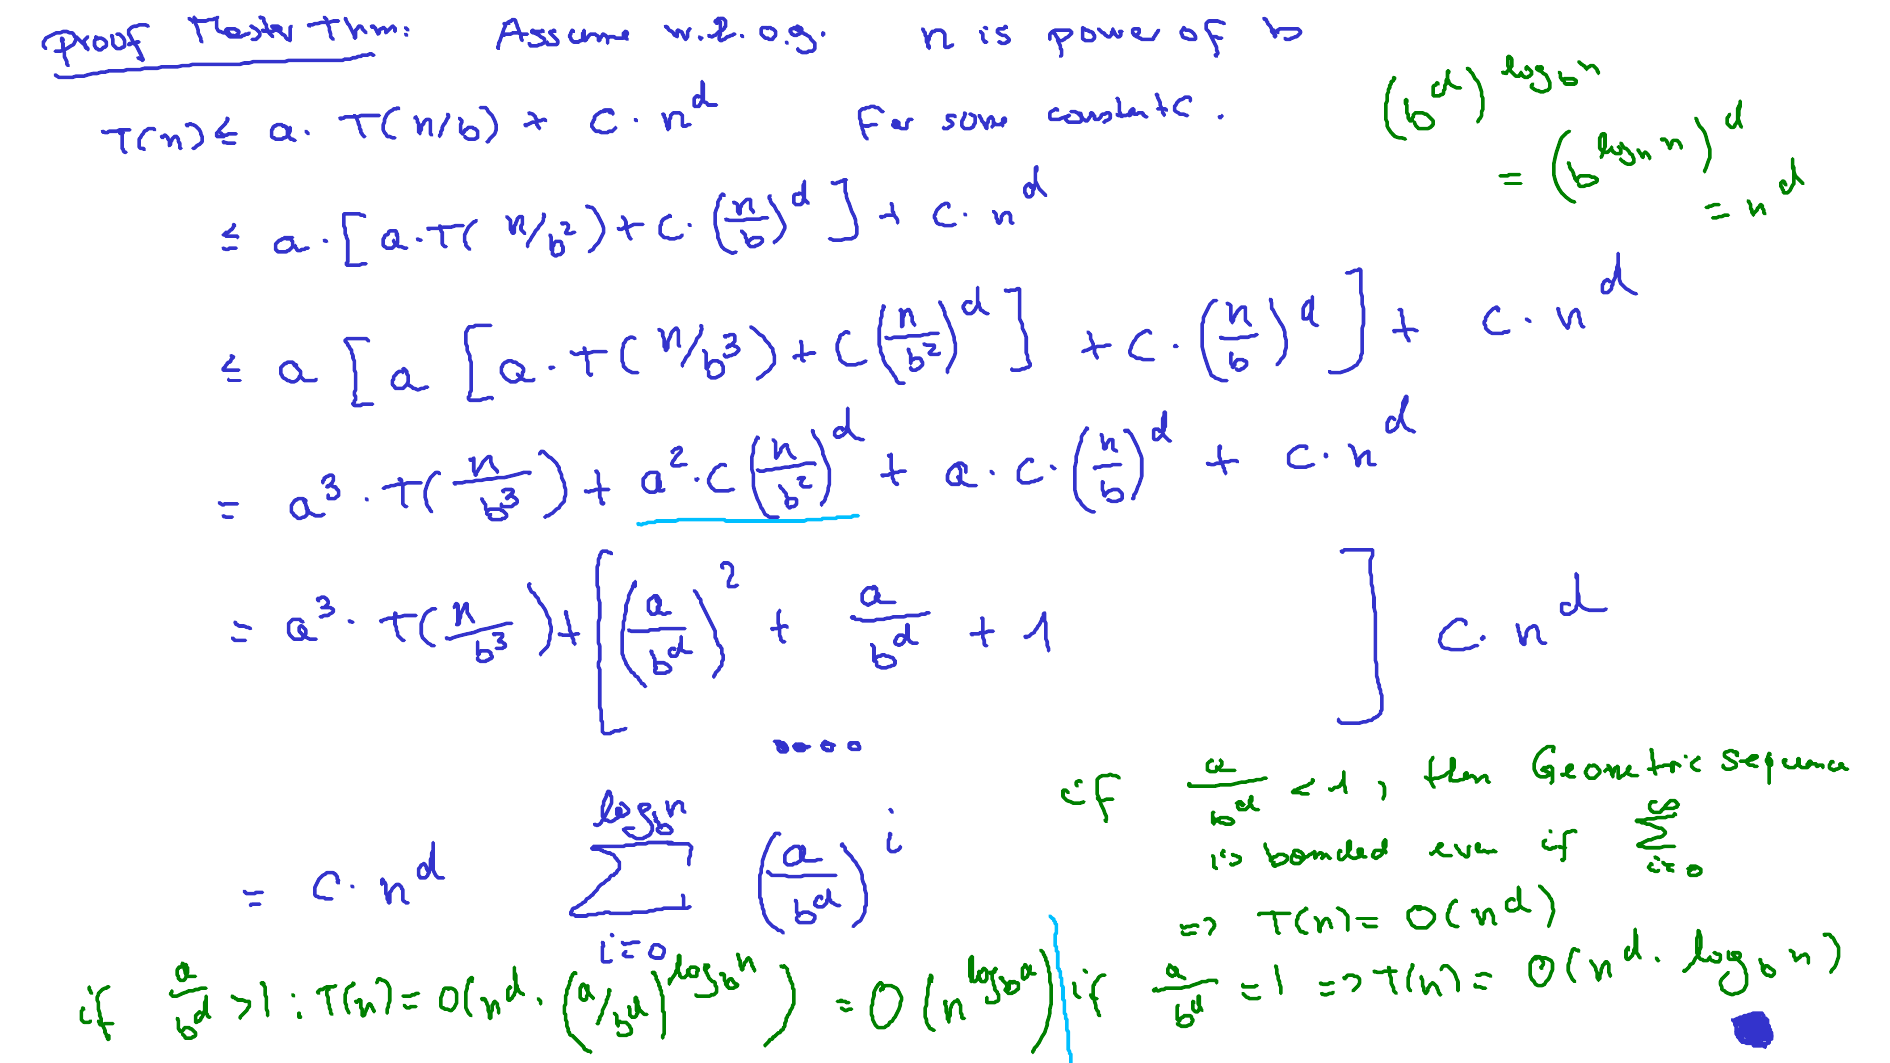 Proof Master Thm: Assume w.l.o.g. n is power of b
T(n) ≤ a · T(n/b) + c · n^d For some constant c.
(b^d)^{log_b n}
= (b^{log_n n})^d
= n^d
≤ a · [a · T(n/b^2) + c · (n/b)^d] + c · n^d
≤ a [a [a · T(n/b^3) + c (n/b^2)^d] + c · (n/b)^d] + c · n^d
= a^3 · T(n/b^3) + a^2 · c (n/b^2)^d + a · c · (n/b)^d + c · n^d
= a^3 · T(n/b^3) + [(a/b^d)^2 + a/b^d + 1 ] c · n^d
....
= c · n^d ∑_{i=0}^{log_b n} (a/b^d)^i
if a/b^d < 1, then Geometric sequence
is bounded even if ∑_{i=0}^{∞}
=> T(n) = O(n^d)
if a/b^d > 1 : T(n) = O(n^d · (a/b^d)^{log_b n}) = O(n^{log_b a})
if a/b^d = 1 => T(n) = O(n^d · log_b n)